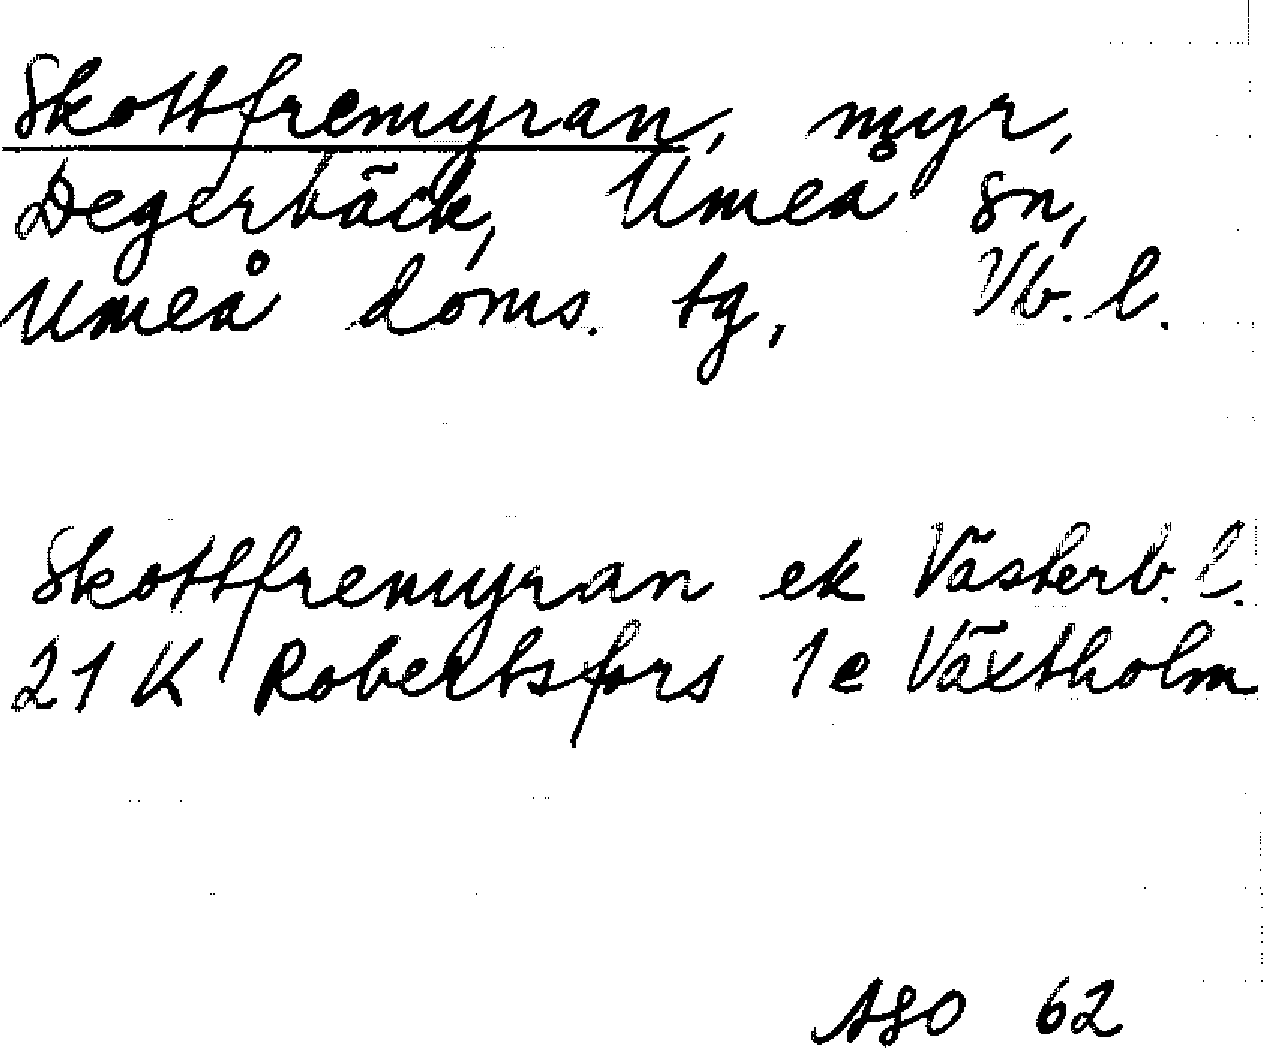 Skottfremyran, myr,
Degerbäck, Umeå sn,
Umeå doms. tg, Vb. l.
Skottfremyran ek Västerb. l.
21 K Robertsfors 1 e Växtholm
ASO 62